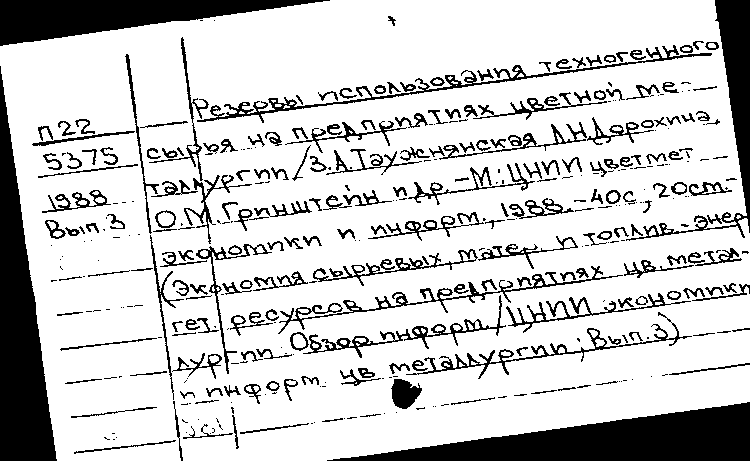 П22
5375
1988
Вып.3
Резервы использования техногенного
сырья на предприятиях цветной ме-
таллургии / З.А. Таужнянская, Л.Н. Дорохина,
О.М. Гринштейн и др. – М.: ЦНИИ цветмет
экономики и информ., 1988. – 40с, 20см. –
(Экономия сырьевых, матер. и топлив.-энер
гет. ресурсов на предприятиях цв. метал-
лургии Обзор. информ. / ЦНИИ экономики
и информ. цв металлургии; Вып.3)